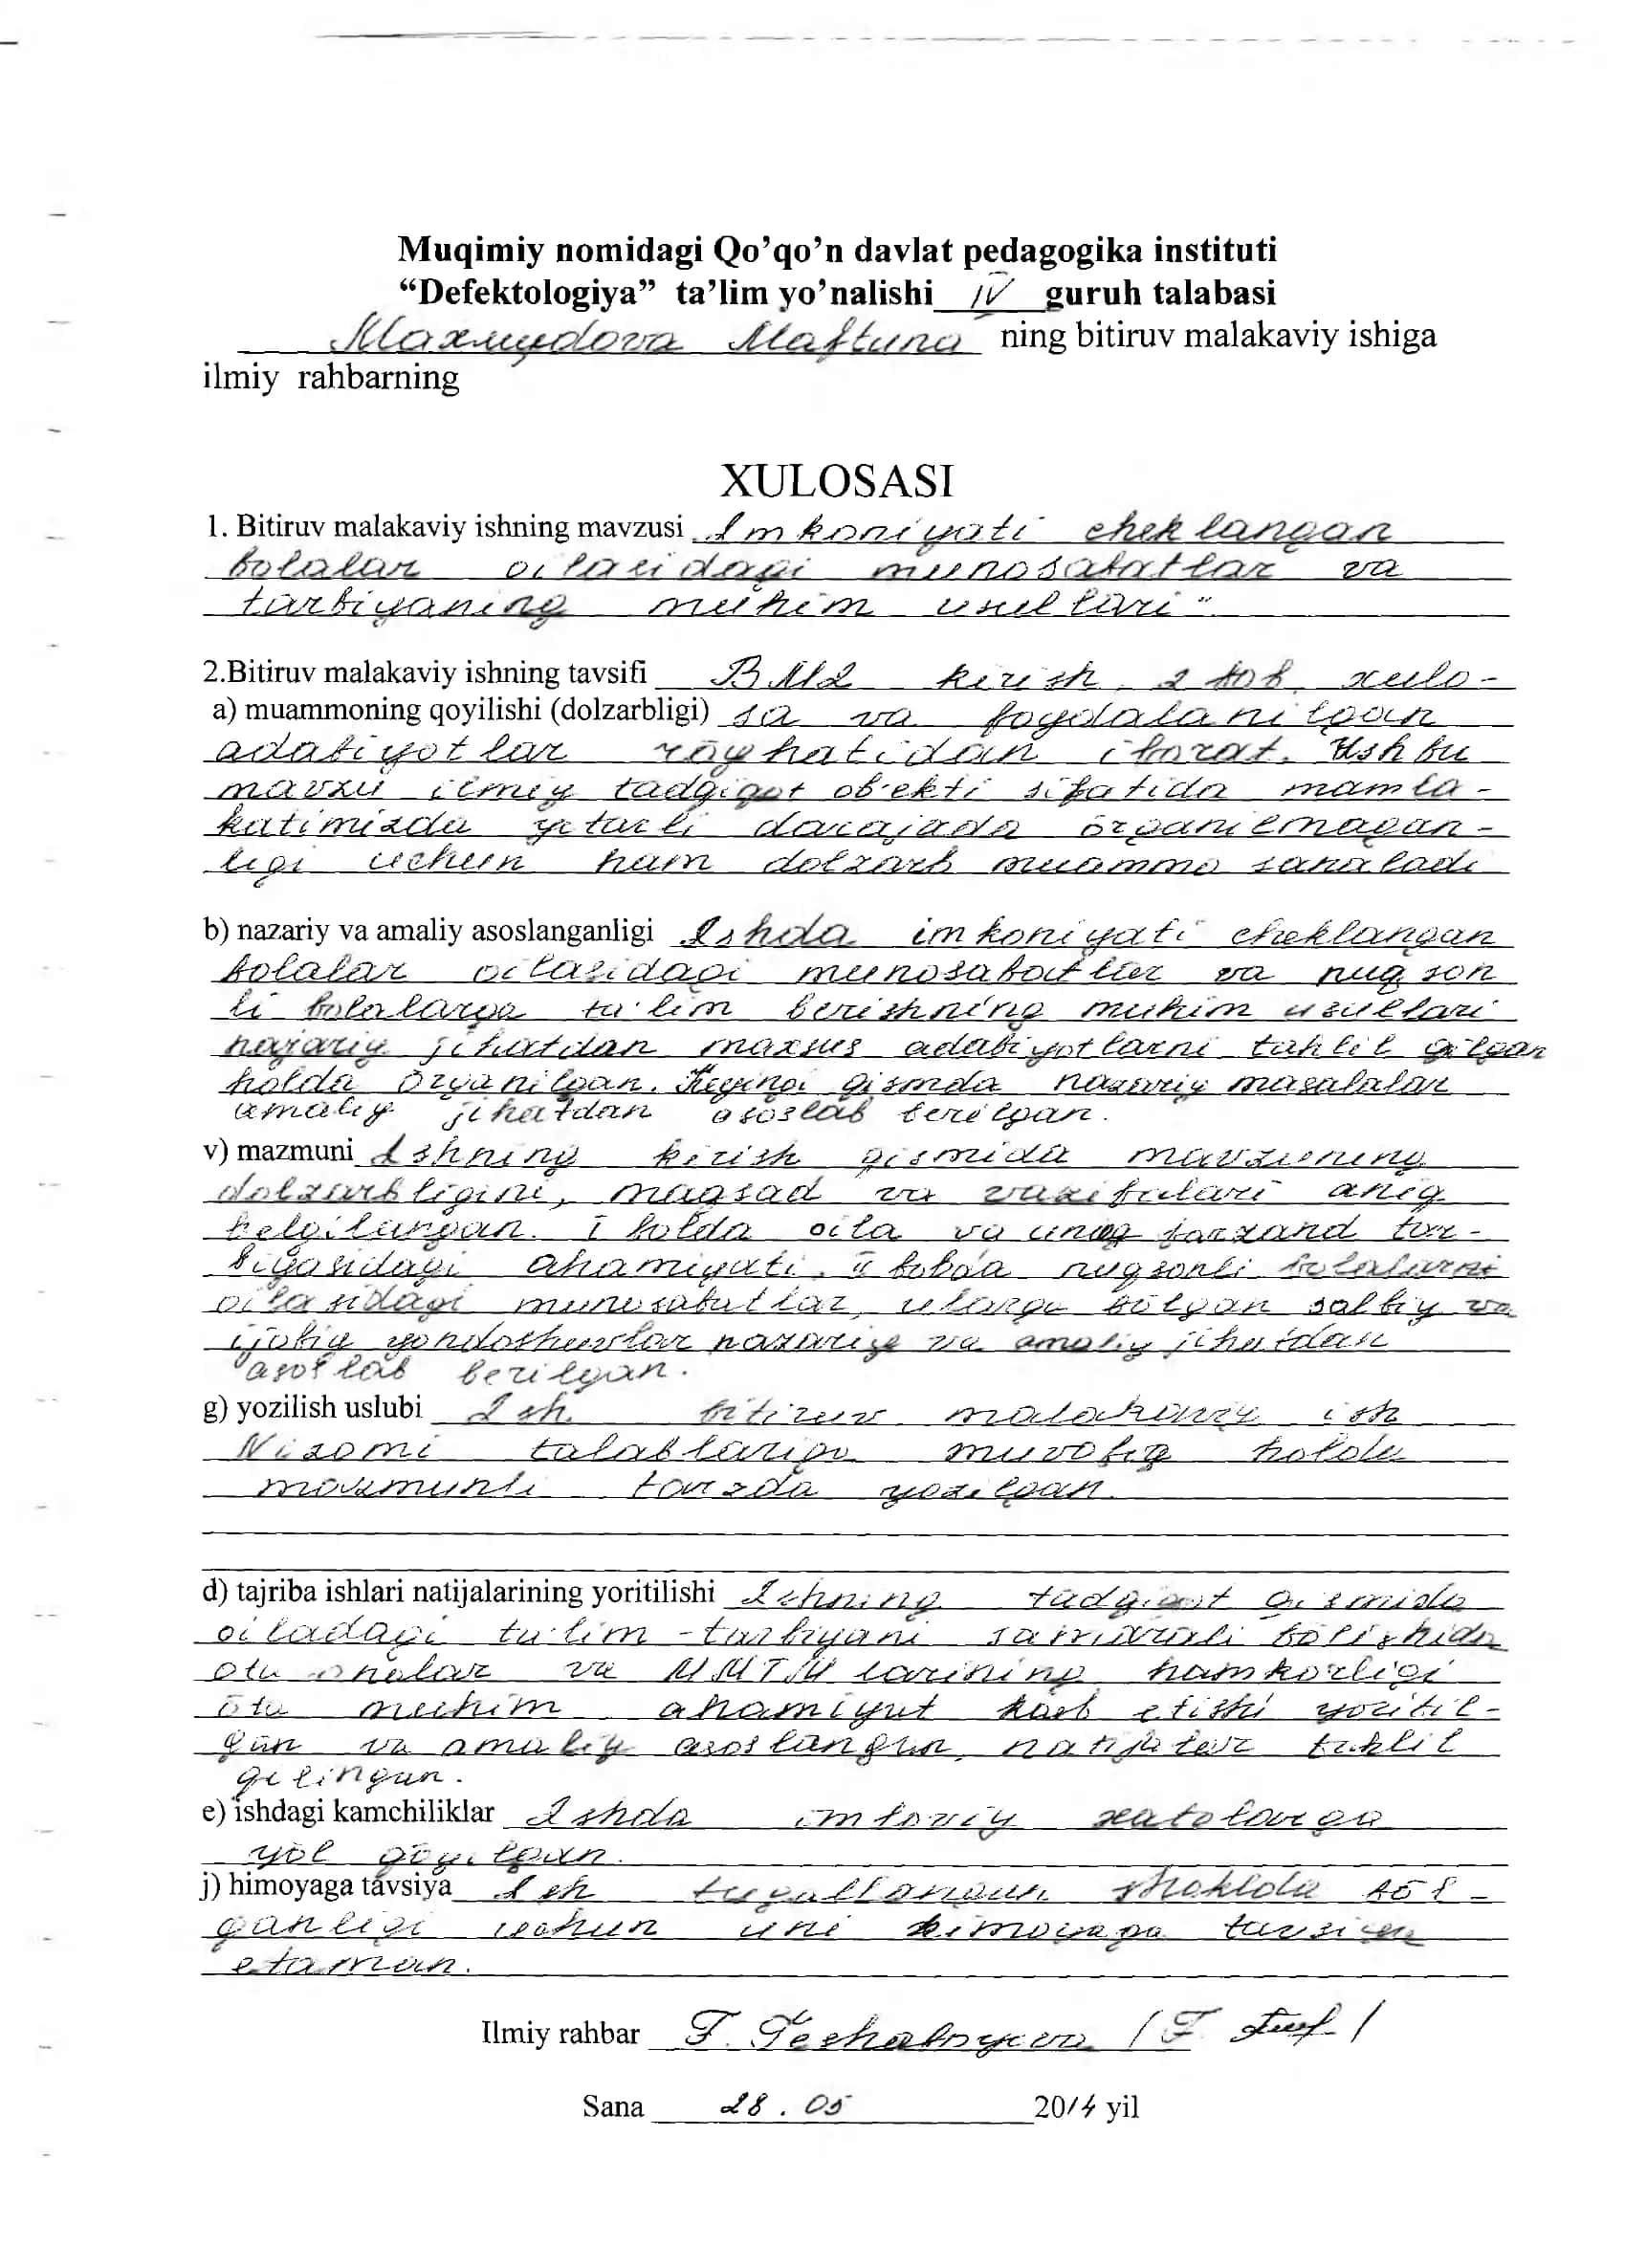 Muqimiy nomidagi Qo’qo’n davlat pedagogika instituti
“Defektologiya” ta’lim yo’nalishi IV guruh talabasi
Maxmudova Maftuna ning bitiruv malakaviy ishiga
ilmiy rahbarning
XULOSASI
1. Bitiruv malakaviy ishning mavzusi Imkoniyati cheklangan
bolalar oilasidagi munosabatlar va
tarbiyaning muhim usullari"
2.Bitiruv malakaviy ishning tavsifi BMI kirish, 2 bob, xulo-
a) muammoning qoyilishi (dolzarbligi) sa va foydalanilgan
adabiyotlar rōyhatidan iborat. Ushbu
mavzu ilmiy tadqiqot ob'ekti sifatida mamla-
katimizda yetarli darajada ōrganilmagan-
ligi uchun ham dolzarb muammo sanaladi
b) nazariy va amaliy asoslanganligi Ishda imkoniyati cheklangan
bolalar oilasidagi munosabatlar va nuqson
li bolalarga ta'lim berishning muhim usullari
nazariy jihatdan maxsus adabiyotlarni tahlil qilgan
holda ōrganilgan. Keyingi qismda nazariy masalalar
amaliy jihatdan asoslab berilgan.
v) mazmuni Ishning kirish qismida mavzuning
dolzarbligini, maqsad va vazifalari aniq
belgilangan. I bobda oila va uning farzand tar-
biyasidagi ahamiyati, II bobda nuqsonli bolalarni
oilasidagi munosabatlar, ularga bōlgan salbiy va
ijobiy yondoshuvlar nazariy va amaliy jihatdan
asoslab berilgan.
g) yozilish uslubi Ish bitiruv malakaviy ish
Nizomi talablariga muvofiq holda
mazmunli tarzda yozilgan.
d) tajriba ishlari natijalarining yoritilishi Ishning tadqiqot qismida
oiladagi ta'lim-tarbiyani samarali bōlishida
ota-onalar va MMTM larining hamkorligi
ōta muhim ahamiyat kasb etishi yoritil-
gan va amaliy asoslangan, natijalar tahlil
qilingan.
e) ishdagi kamchiliklar Ishda imloviy xatolarga
yōl qōyilgan.
j) himoyaga tavsiya Ish tugallangan shaklda bōl-
ganligi uchun uni himoyaga tavsiya
etaman.
Ilmiy rahbar F. Teshaboyeva / F. /
Sana 28.05 2014 yil